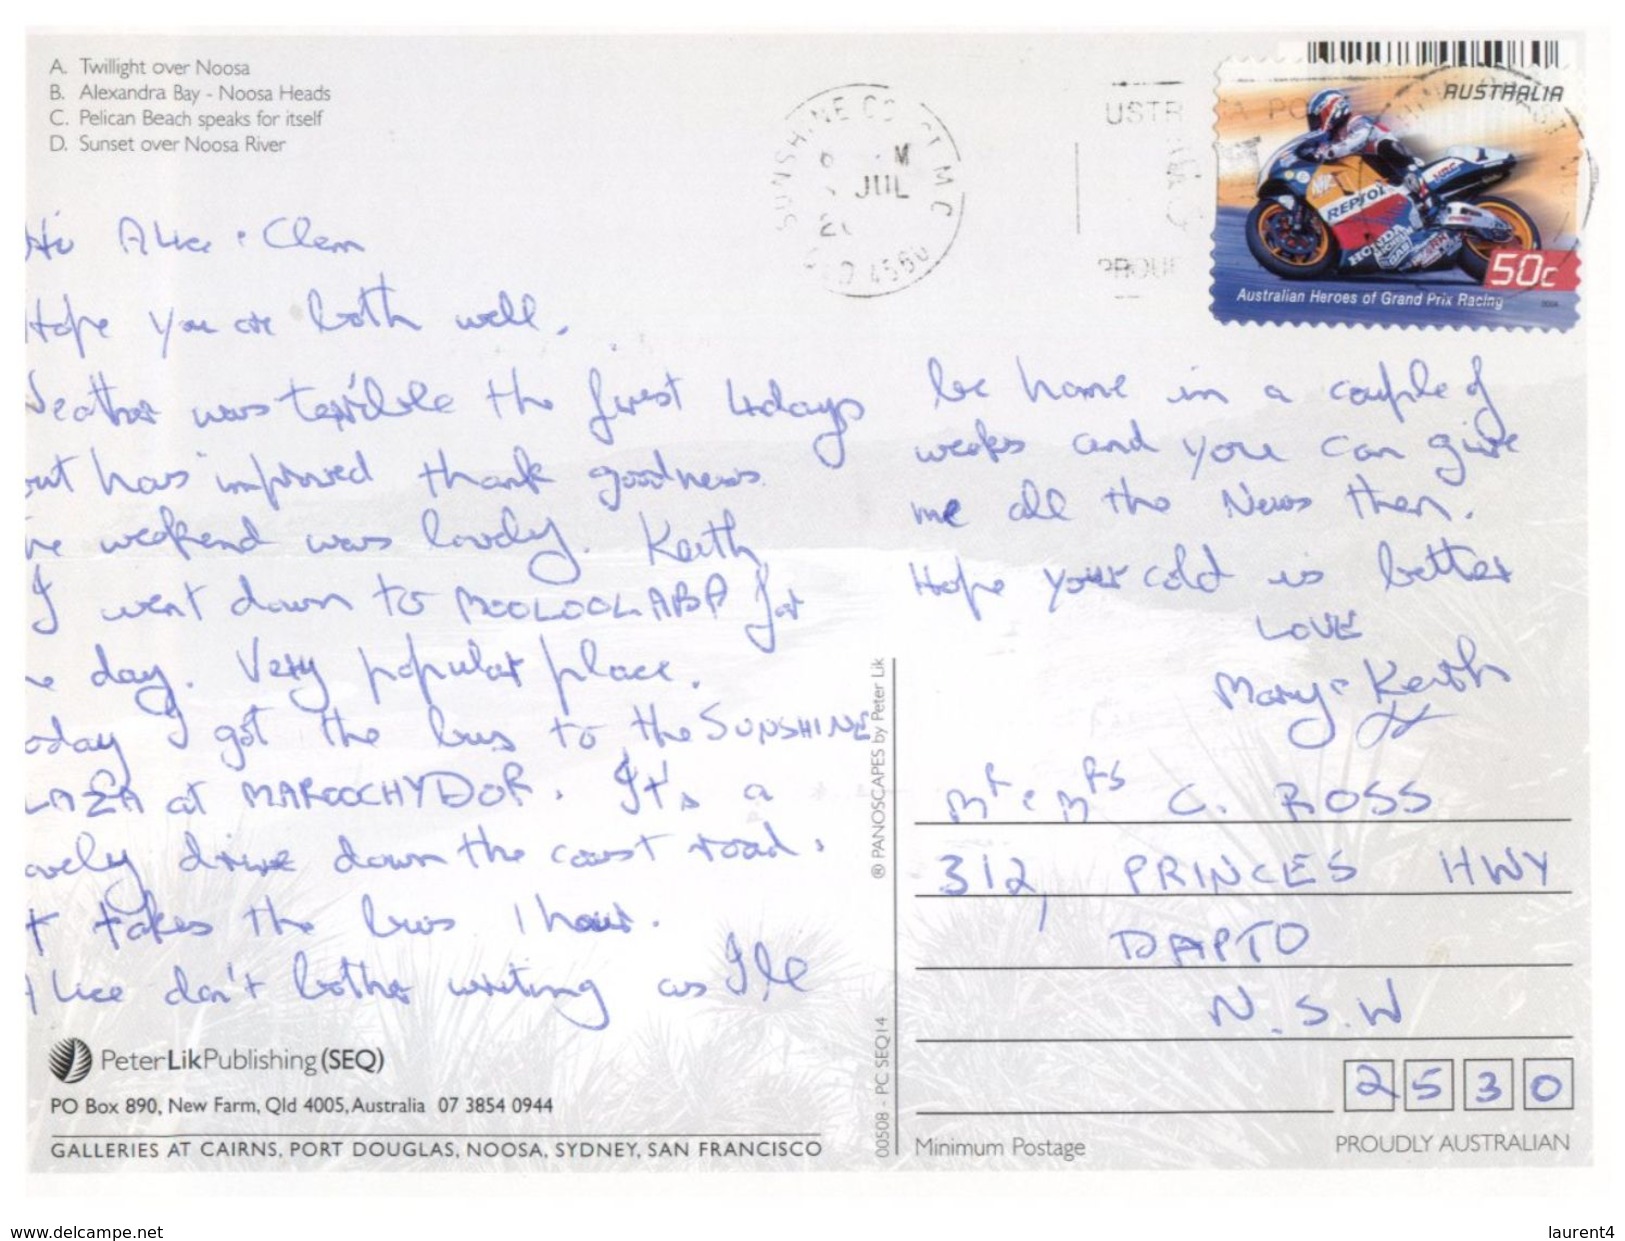 A. Twillight over Noosa
B. Alexandra Bay - Noosa Heads
C. Pelican Beach speaks for itself
D. Sunset over Noosa River
SUNSHINE CO ST M C
M
JUL
2
QLD 4560
USTR A PO
PROU
AUSTRALIA
REPSOL
HONDA
50c
Australian Heroes of Grand Prix Racing
2004
Hi Alice & Clem
Hope you are both well.
Weather was terrible the first 4 days
but has improved thank goodness.
he weekend was lovely. Keith
I went down to MOOLOOLABA for
e day. Very popular place.
oday I got the bus to the SUNSHINE
LAZA at MAROOCHYDOR. It's a
ovely drive down the coast road.
t takes the bus 1 hour.
Alice don't bother writing as I'll
be home in a couple of
weeks and you can give
me all the News then.
Hope your cold is better
LOVE
Mary & Keith
Mr & Mrs C. ROSS
312, PRINCES HWY
DAPTO
N.S.W
2530
® PANOSCAPES by Peter Lik
00508 - PC SEQ14
PeterLikPublishing (SEQ)
PO Box 890, New Farm, Qld 4005, Australia 07 3854 0944
GALLERIES AT CAIRNS, PORT DOUGLAS, NOOSA, SYDNEY, SAN FRANCISCO
Minimum Postage
PROUDLY AUSTRALIAN
www.delcampe.net
laurent4